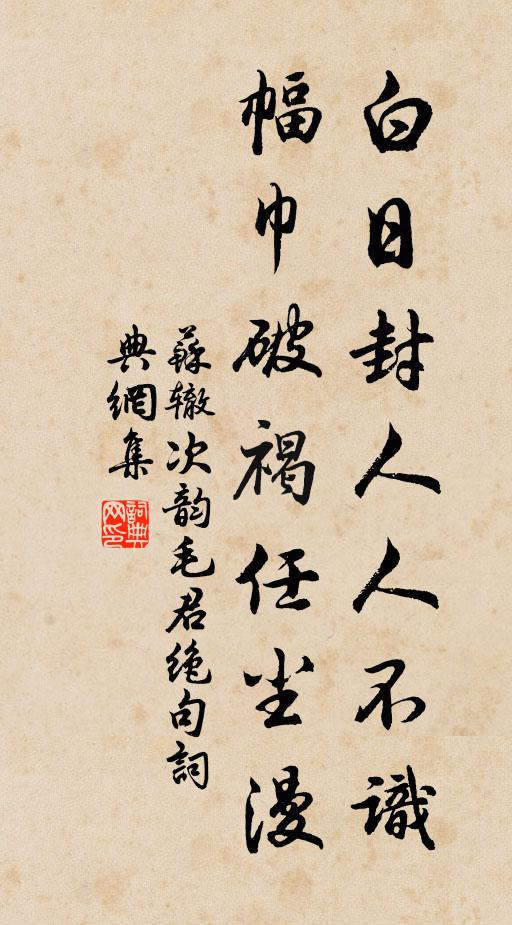 白日封人人不識
幅巾破褐任尘漫
蘇辙次韵毛君绝句詞
典網集
詞典网印